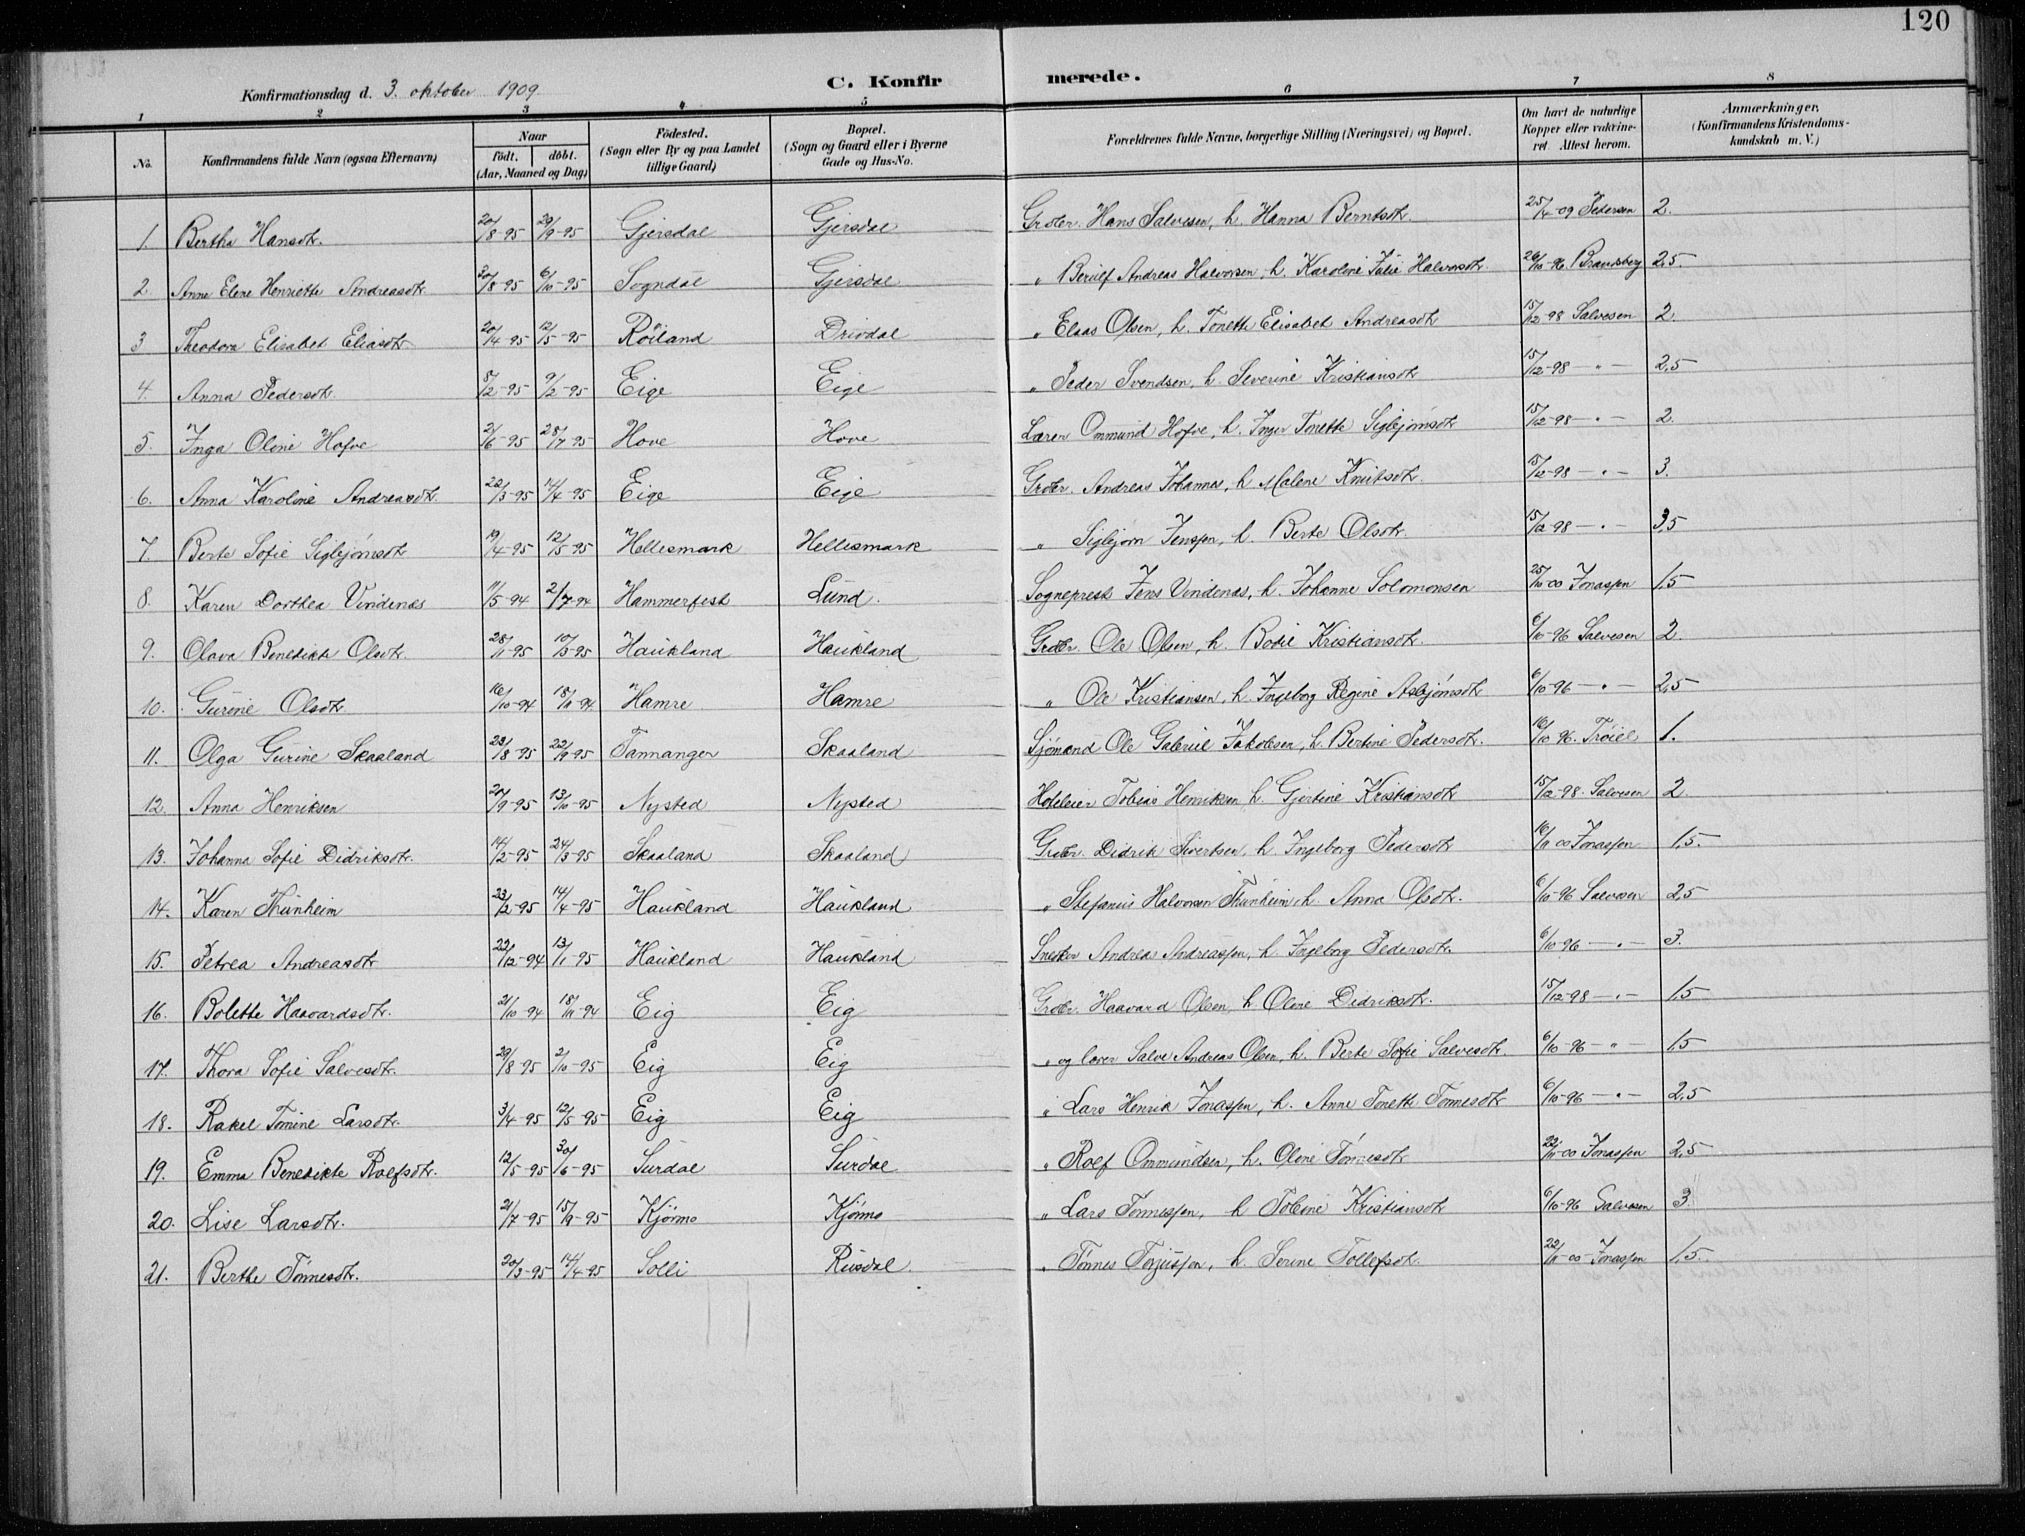 120
Konfirmationsdag d. 3. oktober 1909
C. Konfirmerede.
1 2 3 4 5 6 7 8
No. | Konfirmandens fulde Navn (ogsaa Efternavn) | Naar födt. döbt. (Aar, Maaned og Dag) | Födested. (Sogn eller By og paa Landet tillige Gaard) | Bopæl. (Sogn og Gaard eller i Byerne Gade og Hus-No. | Forældrenes fulde Navne, borgerlige Stilling (Næringsvei) og Bopæl. | Om havt de naturlige Kopper eller vakcineret. Attest herom. | Anmærkninger. (Konfirmandens Kristendomskundskab m. V.)
1. Bertha Hansdtr. 20/8-95 29/9-95 Gjersdal Gjersdal Grdbr. Hans Salvesen, h. Hanna Berntsdtr. 25/4-09 Pedersen 2.
2. Anne Elene Henriette Andreasdtr. 20/8-95 6/10-95 Sogndal Gjersdal " Berulf Andreas Halvorsen, h. Karoline Julie Halvorsdtr. 26/10-96 Brandsberg 2,5.
3 Theodora Elisabet Eliasdtr. 20/4-95 12/5-95 Röiland Drivdal " Elaas Olsen, h. Tonette Elisabet Andreasdtr 15/12-98 Salvesen 2.
4. Anna Pedersdtr. 8/2-95 9/2-95 Eige Eige " Peder Svendsen, h. Severine Kristiansdtr 15/12-98 - " - 2,5
5. Inga Oline Hofve 2/6-95 28/7-95 Hove Hove Lærer Ommund Hofve, h. Inger Tonette Sigbjörnsdtr 15/12-98 - " - 2.
6. Anna Karoline Andreasdtr. 22/3-95 14/4-95 Eige Eige Grdbr. Andreas Johannes, h Malene Knutsdtr. 15/12-98 - " - 3.
7 Berte Sofie Sigbjörnsdtr 19/4-95 12/5-95 Hellesmark Hellesmark " Sigbjörn Jenssen, h. Berte Olsdtr. 15/12-98 - " - 3,5
8. Karen Dorthea Vindenas 11/5-94 2/7-94 Hammerfest Lund. Sogneprest Jens Vindenas, h. Johanne Solomonsen 25/10-00 Jonassen 1,5
9. Olava Benedikte Olsdtr. 28/1-95 10/3-95 Haukland Haukland Grdbr. Ole Olsen, h. Bodil Kristiansdtr. 6/10-96 Salvesen 2.
10. Gurine Olsdtr 16/10-94 18/11-94. Hamre Hamre " Ole Kristiansen, h. Ingeborg Regine Asbjörnsdtr 6/10-96 - " - 2,5
11. Olga Gurine Skaaland 23/8-95 22/9-95 Tannanger Skaaland Sjömand Ole Gabriel Jakobsen, h. Bertine Pedersdtr. 16/10-96. Tröiel 1.
12. Anna Henriksen 20/9-95 13/10-95 Nysted Nysted Hoteleier Tobias Henriksen h. Gjertine Kristiansdtr 15/12-98. Salvesen 2.
13. Johanna Sofie Didriksdtr. 14/2-95 24/3-95 Skaaland Skaaland Grdbr. Didrik Sivertsen, h. Ingeborg Pedersdtr 16/11-00 Jonassen 1,5.
14. Karen Thunheim 23/2-95 14/4-95 Haukland Haukland " Stefanus Halvorsen Thunheim, h. Anna Olsdtr. 6/10-96 Salvesen 2,5
15. Petrea Andreasdtr 22/12-94 13/1-95 Haukland Haukland Snekker Andreas Andreassen, h. Ingeborg Pedersdtr. 6/10-96 - " - 3.
16. Bolette Haavardsdtr. 21/10-94 18/11-94 Eig Eig Grdbr. Haavard Olsen, h. Oline Didriksdtr. 15/12-98 - " - 1,5
17. Thora Sofie Salvesdtr. 29/8-95 2/10-95 Eig Eig " og lærer Salve Andreas Olsen, h. Berte Sofie Salvesdtr. 6/10-96 - " - 1,5
18. Rakel Tomine Larsdtr. 3/4-95 12/5-95 Eig Eig " Lars Henrik Jonassen, h. Anne Tonette Tönnesdtr 6/10-96 - " - 2,5
19. Emma Benedikte Rolfsdtr. 12/5-95 30/6-95 Surdal Surdal " Rolf Ommundsen, h. Oline Tönnesdtr 22/11-00 Jonassen 2,5
20. Lise Larsdtr. 21/7-95 15/9-95 Kjörmo Kjörmo " Lars Tönnessen, h Tobine Kristiansdtr 6/10-96 Salvesen 3.
21. Berthe Tönnesdtr. 20/3-95 14/4-95 Solli Rusdal. " Tönnes Torjussen, h. Serine Tollefsdtr. 22/11-00 Jonassen 1,5.